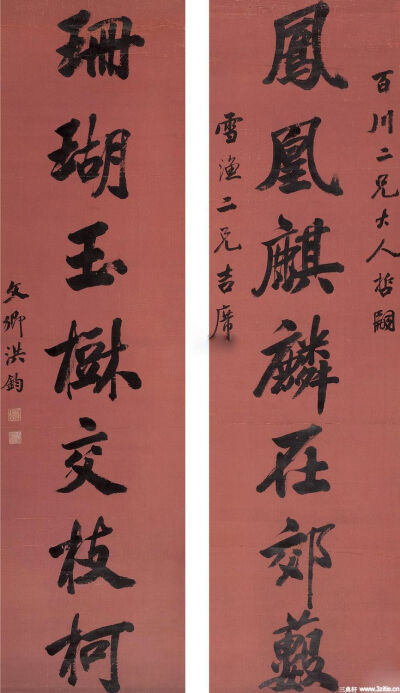 百川二兄大人哲嗣
鳳凰麒麟在郊藪
雪漁二兄吉席
珊瑚玉樹交枝柯
文卿洪鈞
www.3zitie.cn